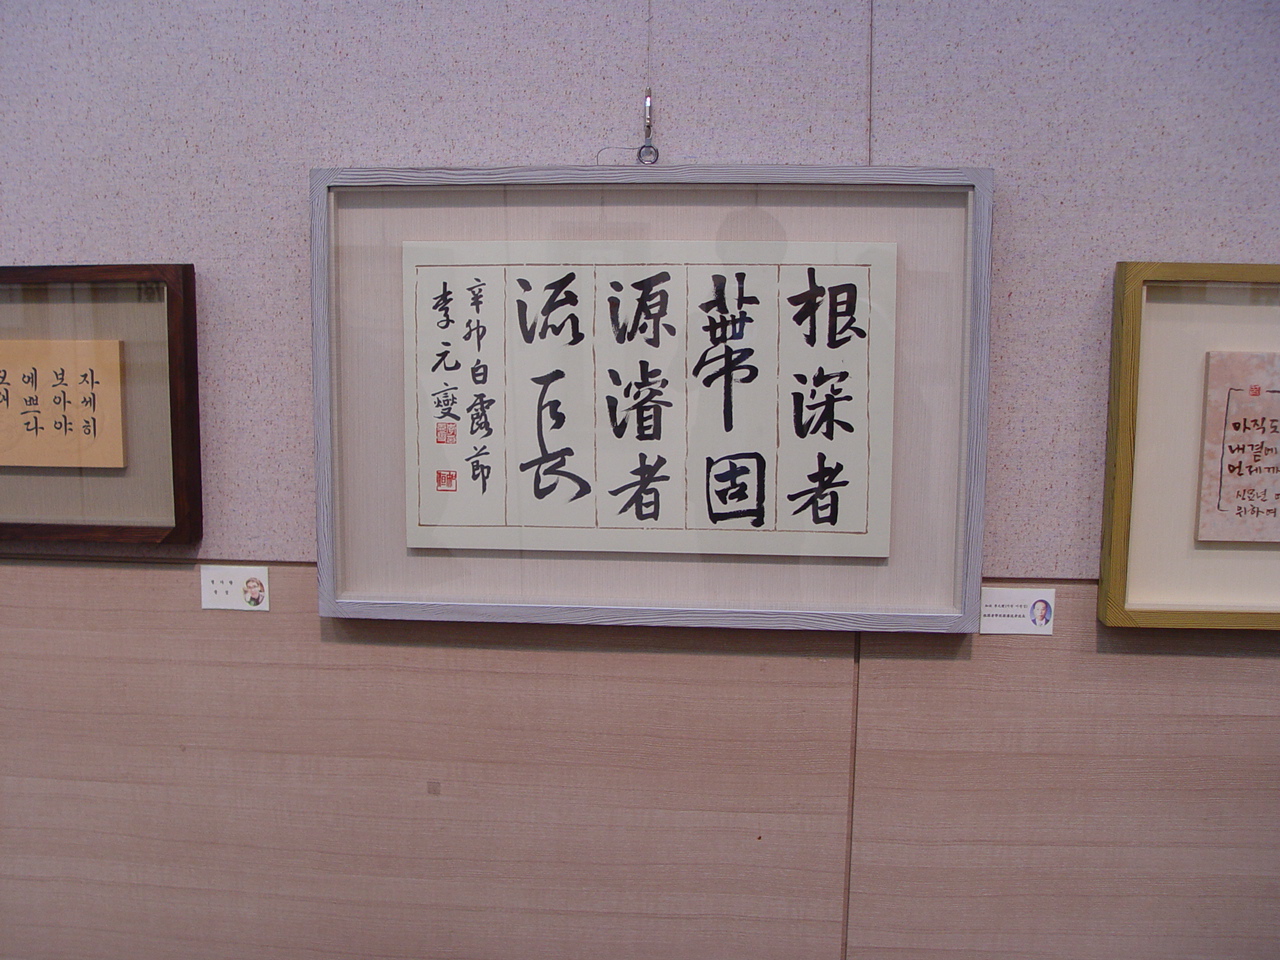 자세히
보아야
예쁘다
根深者
蔕固
源濬者
流長
辛卯白露節
李元燮
아직도
내곁에
언제까
신묘년
위하여